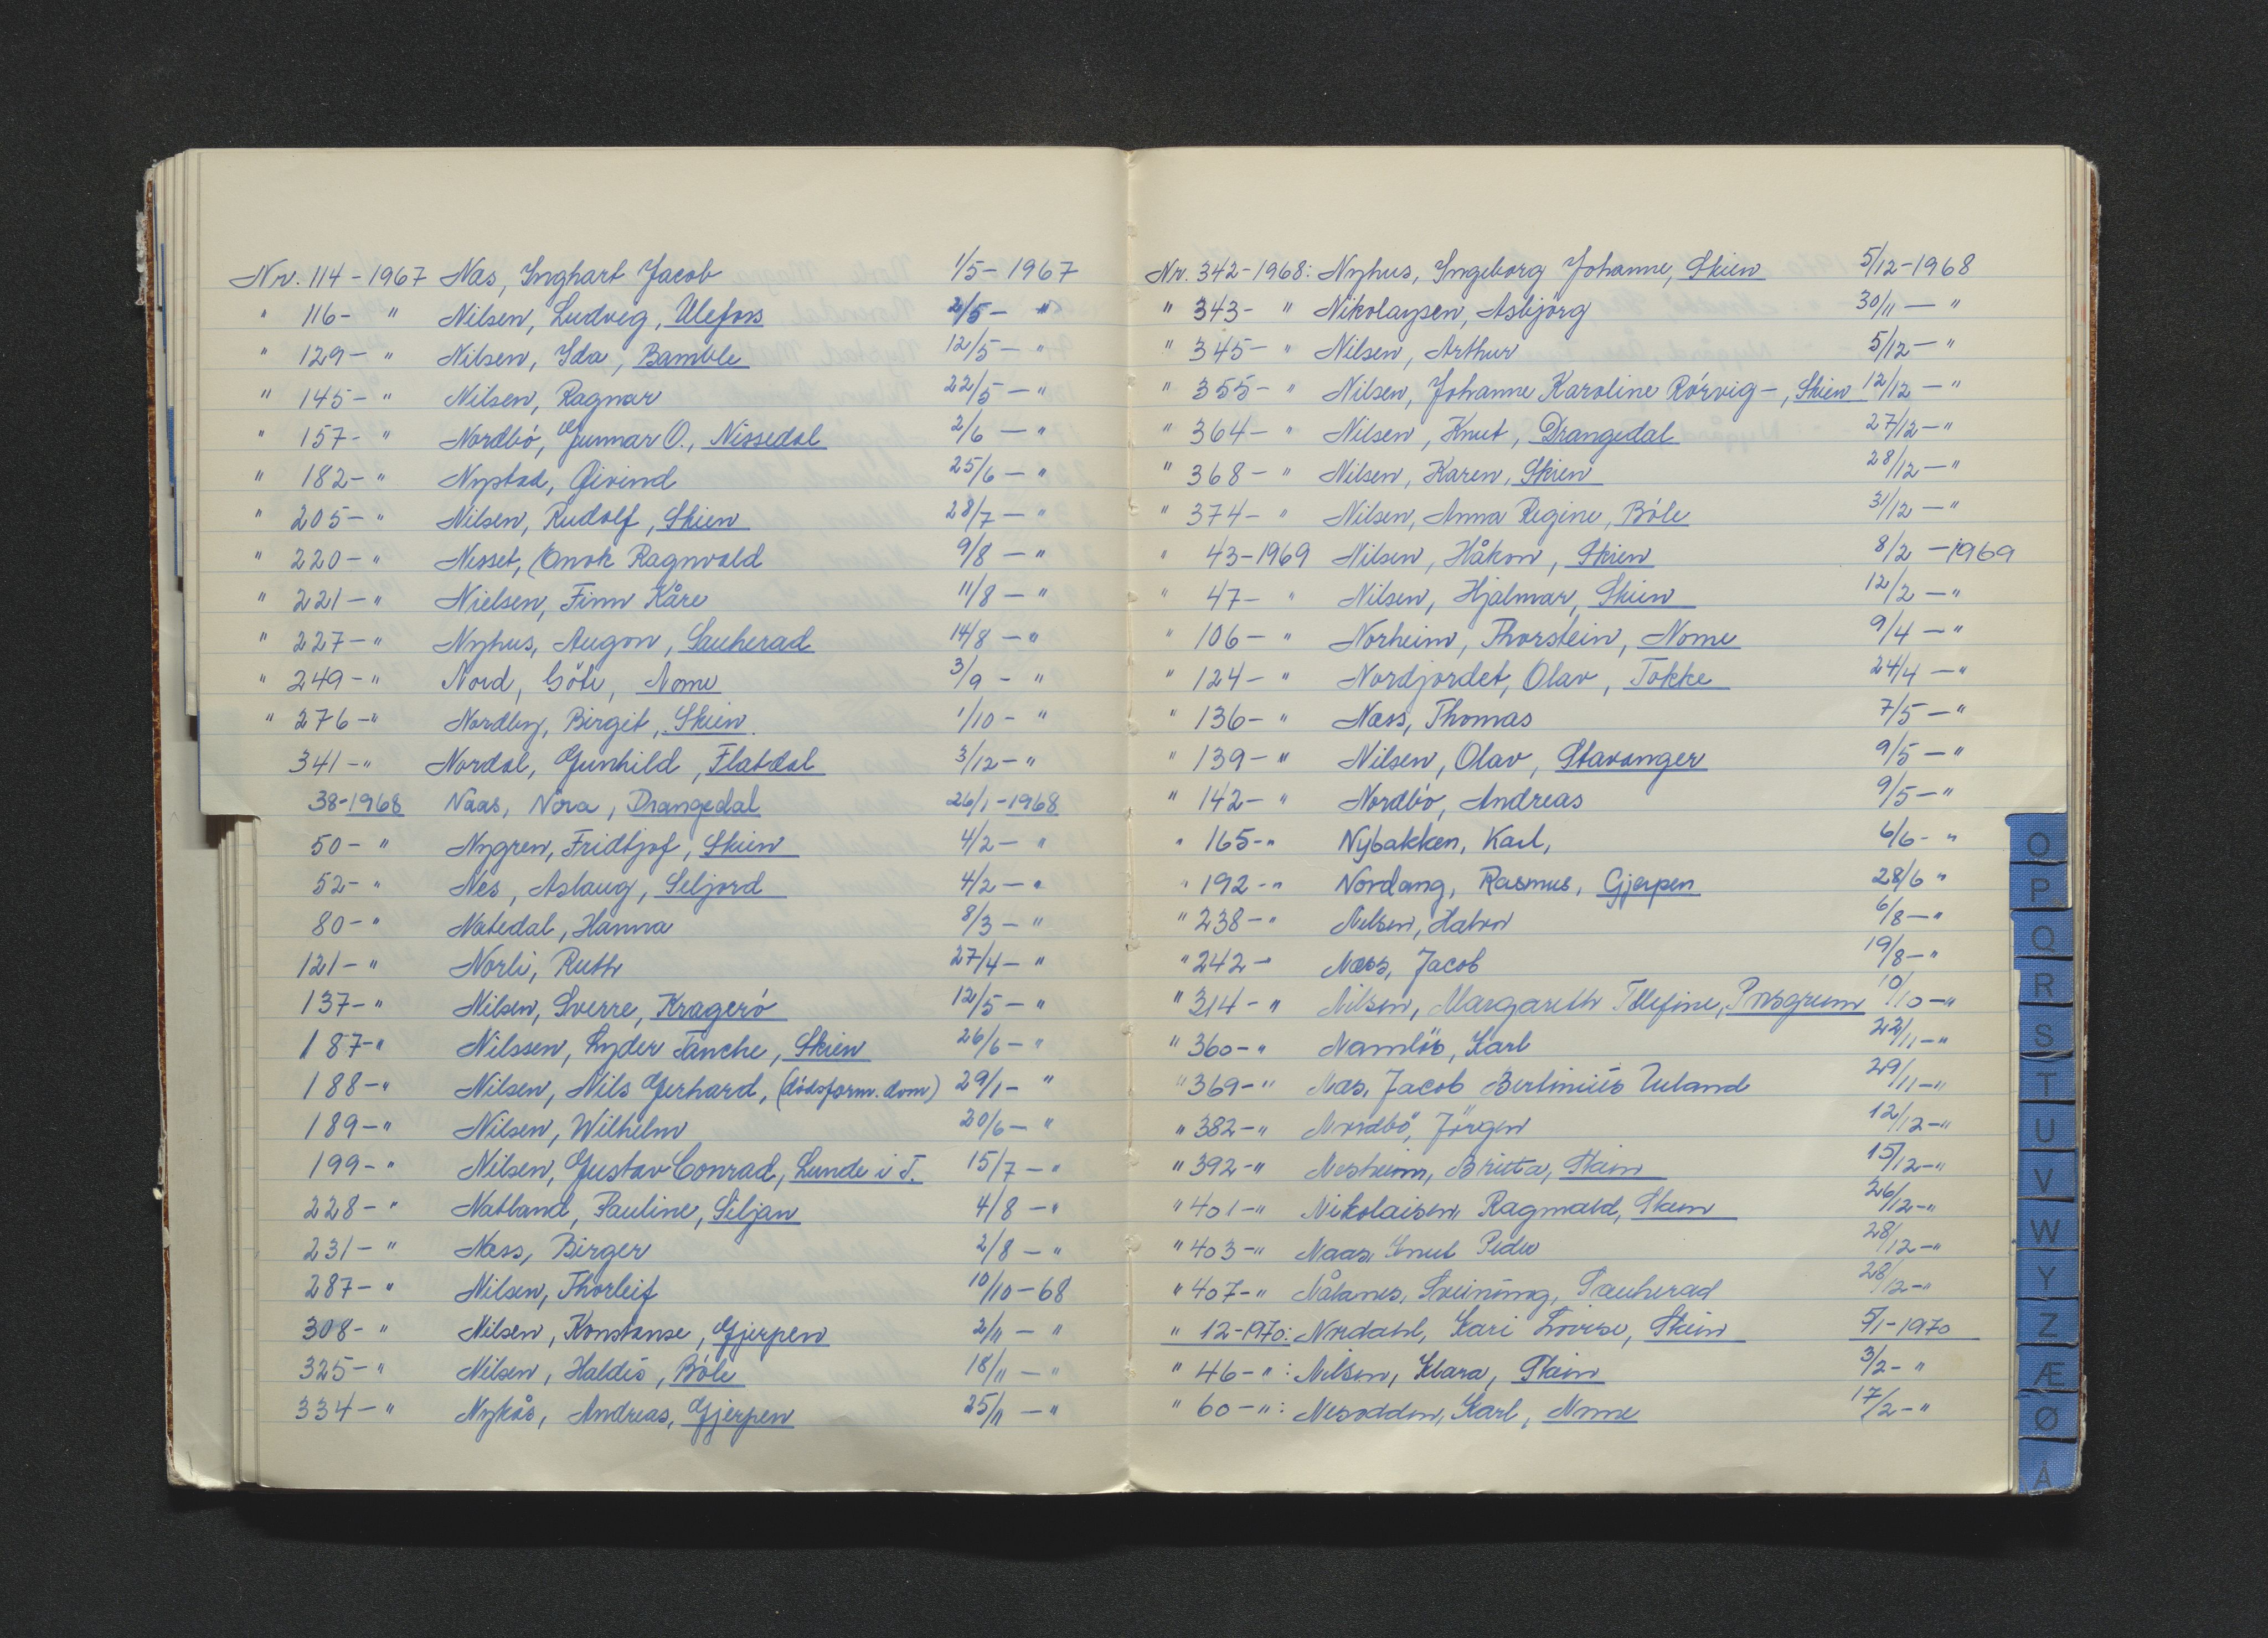 Nr. 114 - 1967 Nas, Inghart Jacob 1/5 - 1967
" 116 - " Nilsen, Ludvig, Ulefoss 2/5 - "
" 129 - " Nilsen, Ida, Bamble 12/5 - "
" 145 - " Nilsen, Ragnar 22/5 - "
" 157 - " Nordbó, Gunnar O., Nissedal 2/6 - "
" 182 - " Nystad, Øivind 25/6 - "
" 205 - " Nilsen, Rudolf, Skien 28/7 - "
" 220 - " Nisset, Enok Ragnvald 9/8 - "
" 221 - " Nielsen, Finn Kåre 11/8 - "
" 227 - " Nyhus, Augon, Sauherad 14/8 - "
" 249 - " Nord, Göte, Nome 3/9 - "
" 276 - " Nordby, Birgit, Skien. 1/10 - "
341 - " Nordal, Gunhild, Flatdal 3/12 - "
38-1968 Naas, Nora, Drangedal 26/1 - 1968
50 - " Nygren, Fridtjof, Skien 4/2 - "
52 - " Nes, Aslaug, Seljord 4/2 - "
80 - " Natedal, Hanna 8/3 - "
121 - " Norli, Ruth 27/4 - "
137 - " Nilsen, Sverre, Krageró 12/5 - "
187 - " Nilssen, Lyder Tanche, Skien 26/6 - "
188 - " Nilsen, Nils Gerhard, (dødsform. dom) 29/1 - "
189 - " Nilsen, Wilhelm 20/6 - "
199 - " Nilsen, Gustav Conrad, Lunde i T. 15/7 - "
228 - " Natland, Pauline, Siljan 4/8 - "
231 - " Næss, Birger 2/8 - "
287 - " Nilsen, Thorleif 10/10 - 68
308 - " Nilsen, Konstanse, Gjerpen 2/11 - "
325 - " Nilsen, Haldis, Bóle 18/11 - "
334 - " Nykås, Andreas, Gjerpen 25/11 - "
Nr. 342 - 1968: Nyhus, Ingeborg Johanne, Skien 5/12 - 1968
" 343 - " Nikolaysen, Asbjörg 30/11 - "
" 345 - " Nilsen, Arthur 5/12 - "
" 355 - " Nilsen, Johanne Karoline Rórvig -, Skien 12/12 - "
" 364 - " Nilsen, Knut, Drangedal 27/12 - "
" 368 - " Nilsen, Karen, Skien 28/12 - "
" 374 - " Nilsen, Anna Regine, Bóle 31/12 - "
" 43 - 1969 Nilsen, Håkon, Skien 8/2 - 1969
" 47 - " Nilsen, Hjalmar, Skien 12/2 - "
" 106 - " Norheim, Thorstein, Nome 9/4 - "
" 124 - " Nordjordet, Olav, Tokke 24/4 - "
" 136 - " Næss, Thomas 7/5 - "
" 139 - " Nilsen, Olav, Stavanger 9/5 - "
" 142 - " Nordbó, Andreas 9/5 - "
" 165 - " Nybakken, Karl, 6/6 - "
" 192 - " Nordang, Rasmus, Gjerpen 28/6 "
" 238 - " Nilsen, Halvor 6/8 - "
" 242 - Næss, Jacob 19/8 - "
" 314 - " Nilsen, Margareth Tellefine, Porsgrunn 10/10 - "
" 360 - " Namlös, Karl 22/11 - "
" 369 - " Nas, Jacob Bertinius Ueland 29/11 - "
" 382 - " Nordbö, Jörgen 12/12 - "
" 392 - " Nesheim, Britta, Skien 15/12 - "
" 401 - " Nikolaisen, Ragnvald, Skien 26/12 - "
" 403 - " Naas, Knut Peder 28/12 - "
" 407 - " Nålanes, Sveinung, Sauherad 28/12 - "
" 12 - 1970: Nordahl, Kari Lovise, Skien 5/1 - 1970
" 46 - " : Nilsen, Klara, Skien 3/2 - "
" 60 - " : Nesodden, Karl, Nome 17/2 - "
O
P
Q
R
S
T
U
V
W
Y
Z
Æ
Ø
Å